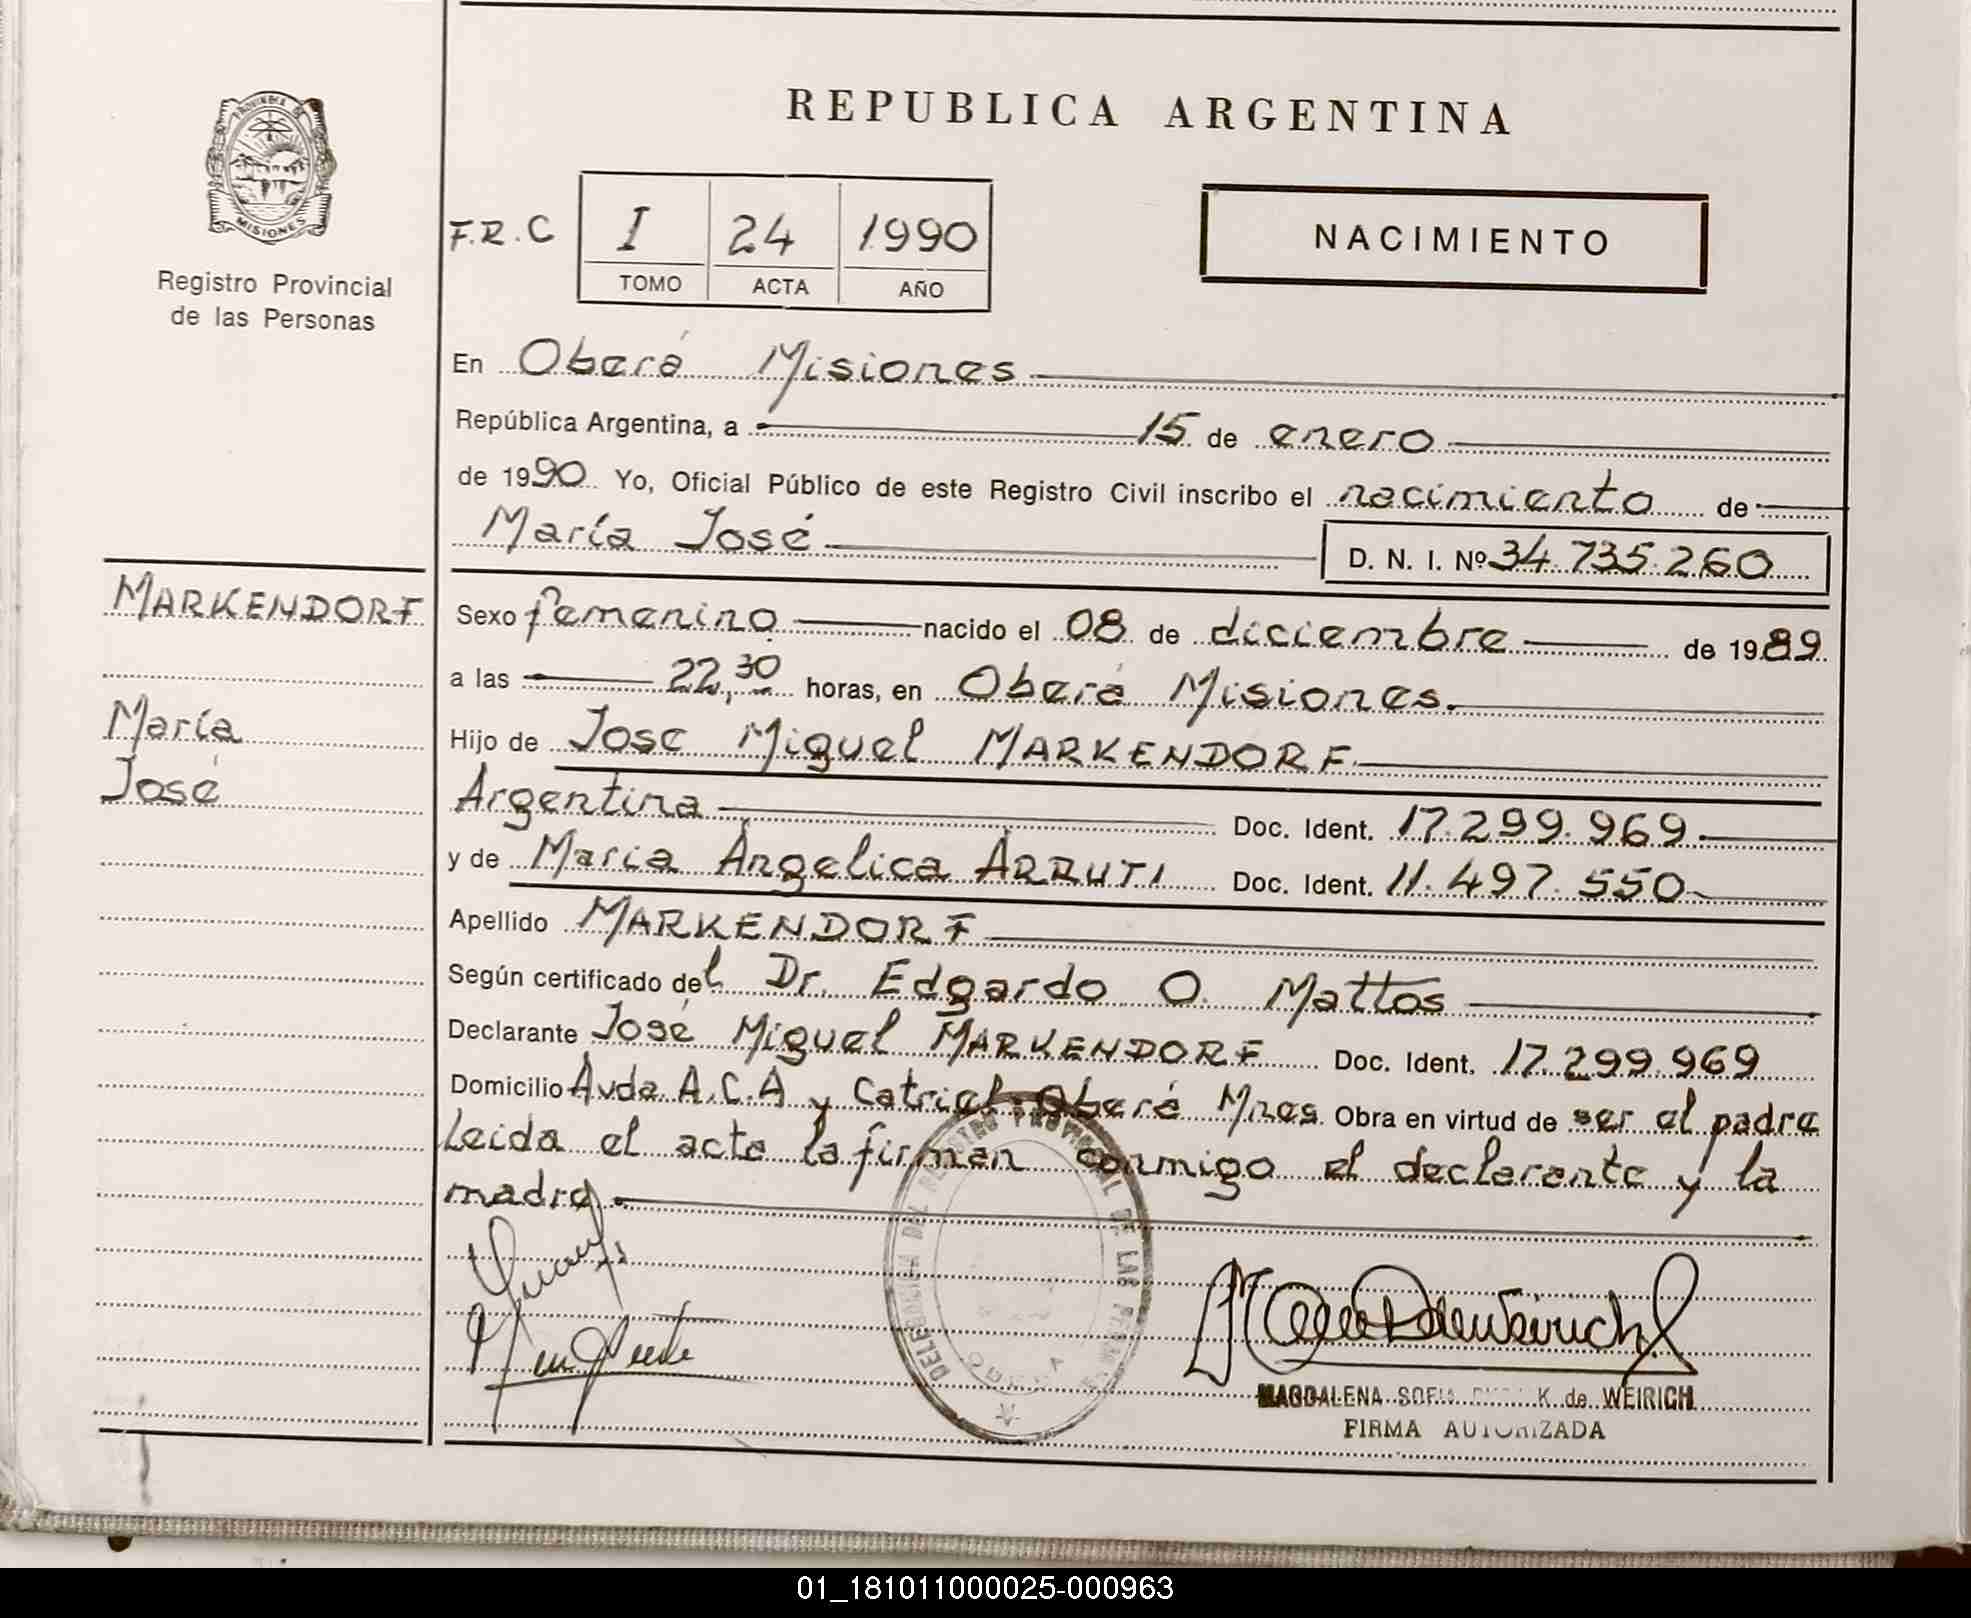 REPUBLICA ARGENTINA
PROVINCIA DE
MISIONES
Registro Provincial
de las Personas
F.R.C I 24 1990
TOMO ACTA AÑO
NACIMIENTO
En Oberá Misiones
República Argentina, a 15 de enero
de 1990 Yo, Oficial Público de este Registro Civil inscribo el nacimiento de
María José
D. N. I. Nº 34.735.260
MARKENDORF
María
José
Sexo femenino nacido el 08 de diciembre de 1989
a las 22,30 horas, en Oberá Misiones.
Hijo de Jose Miguel MARKENDORF
Argentina Doc. Ident. 17.299.969
y de Maria Angelica ARRUTI Doc. Ident. 11.497.550
Apellido MARKENDORF
Según certificado del Dr. Edgardo O. Mattos
Declarante José Miguel MARKENDORF Doc. Ident. 17.299.969
Domicilio Avda. A.C.A y Catriel. Oberá Mnes. Obra en virtud de ser el padre
Leida el acta la firman conmigo el declarante y la
madre
DELEGACION DEL REGISTRO PROVINCIAL DE LAS PERSONAS
OBERA
MAGDALENA SOFIA K. de WEIRICH
FIRMA AUTORIZADA
01_181011000025-000963